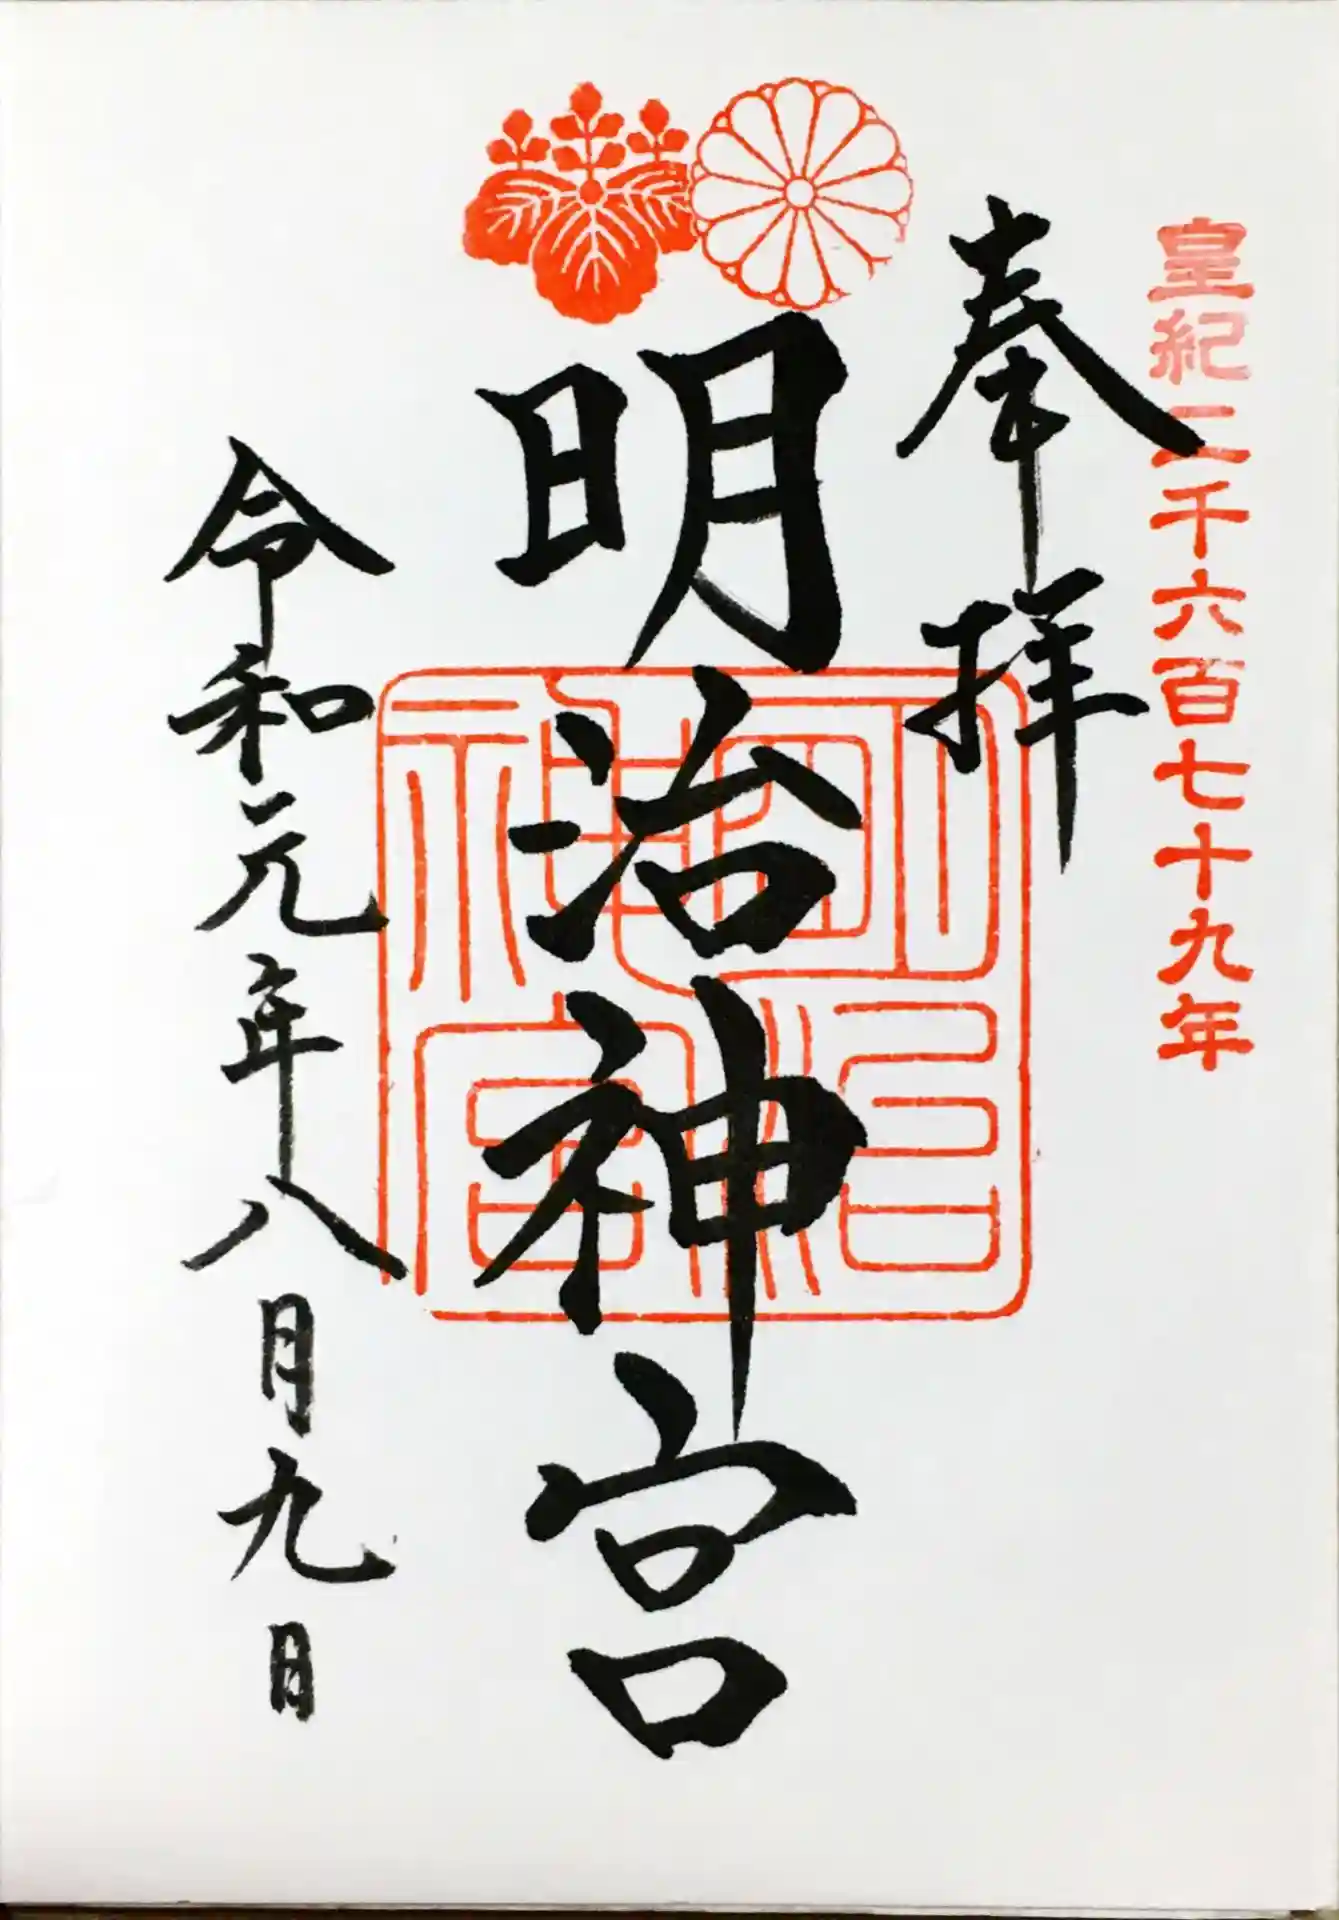 皇紀二千六百七十九年
奉拝
明治神宮
明治神宮
令和元年八月九日